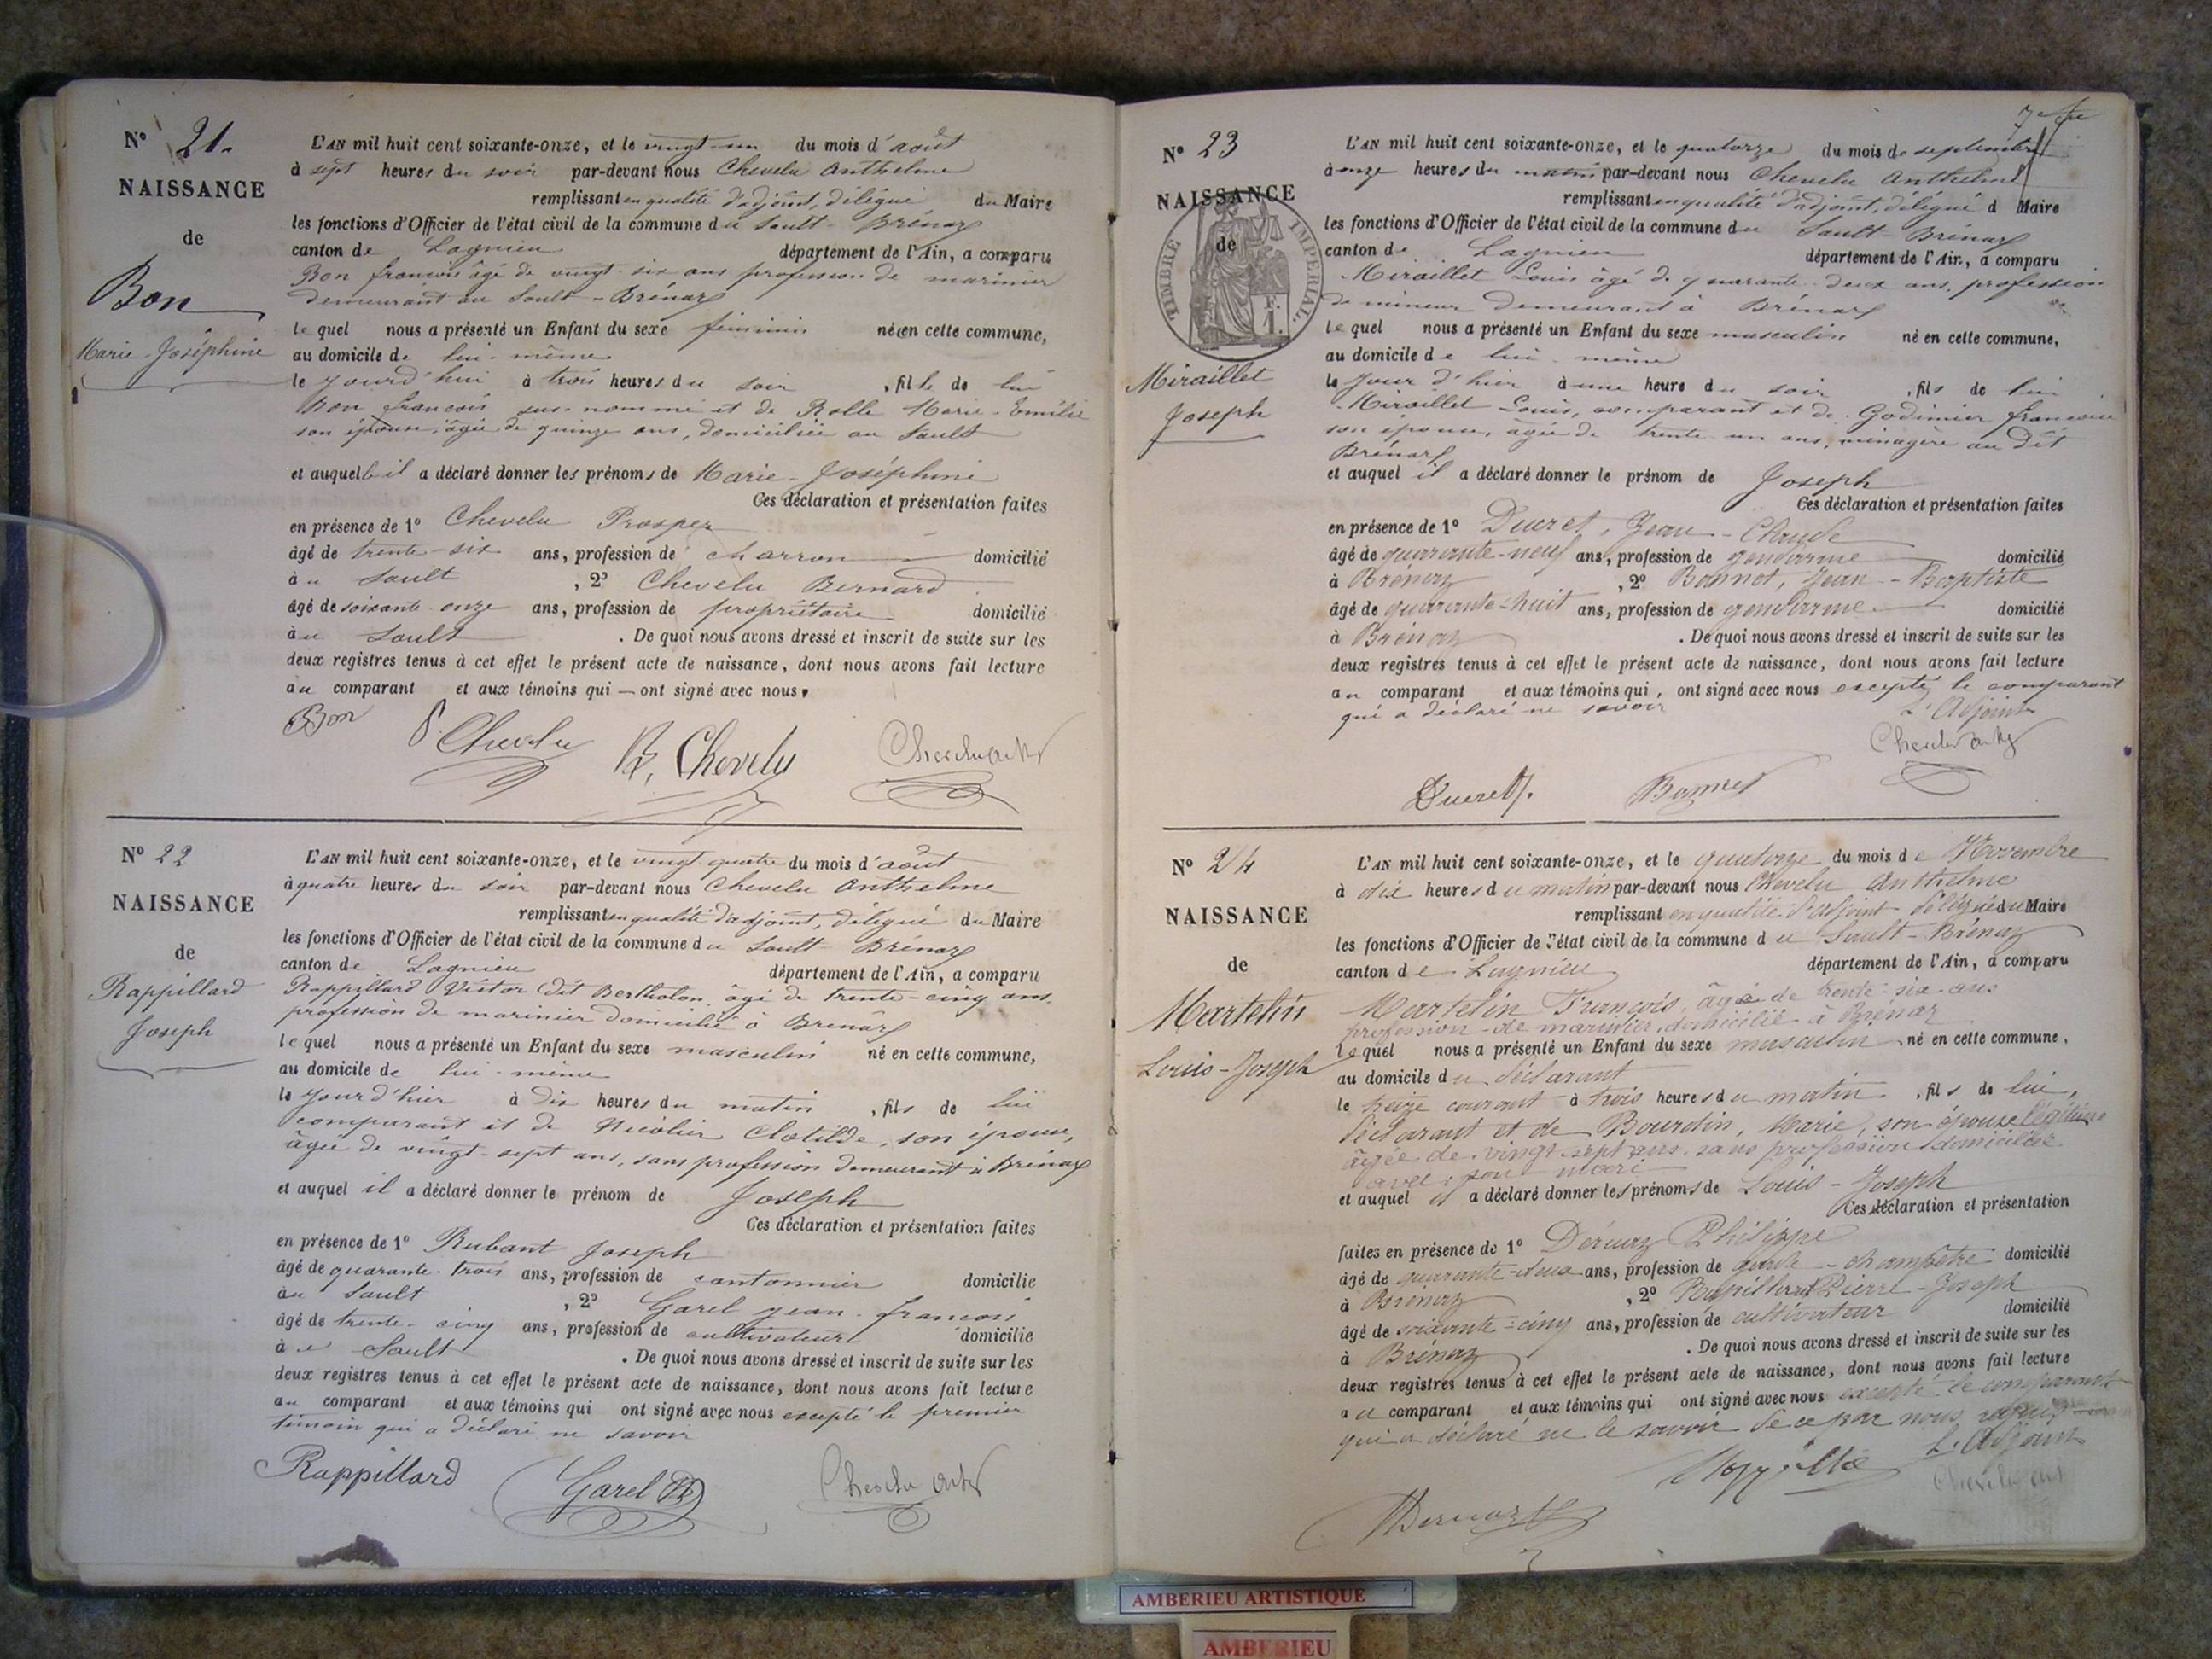 N° 21.
NAISSANCE
de
Bon
Marie-Joséphine
L'AN mil huit cent soixante-onze, et le vingt-un du mois d'août
à sept heures du soir par-devant nous Chevelu Anthelme
remplissant en qualité d'adjoint, délégué du Maire
les fonctions d'Officier de l'état civil de la commune du Sault-Brénaz
canton de Lagnieu département de l'Ain, a comparu
Bon françois âgé de vingt-six ans profession de marinier
demeurant au Sault-Brénaz
lequel nous a présenté un Enfant du sexe féminin né en cette commune,
au domicile de lui-même
le jourd'hui à trois heures du soir, fille de lui
Bon françois sus-nommé et de Rolle Marie-Emélie
son épouse, âgée de quinze ans, domiciliée au Sault
et auquelle il a déclaré donner les prénoms de Marie-Joséphine
Ces déclaration et présentation faites
en présence de 1° Chevelu Prosper
âgé de trente-six ans, profession de charron domicilié
au Sault, 2° Chevelu Bernard
âgé de soixante-onze ans, profession de propriétaire domicilié
au Sault. De quoi nous avons dressé et inscrit de suite sur les
deux registres tenus à cet effet le présent acte de naissance, dont nous avons fait lecture
au comparant et aux témoins qui — ont signé avec nous.
Bon P. Chevelu B, Chevelu Chevelu anth
N° 22
NAISSANCE
de
Rappillard
Joseph
L'AN mil huit cent soixante-onze, et le vingt-quatre du mois d'août
à quatre heures du soir par-devant nous Chevelu Anthelme
remplissant en qualité d'adjoint, délégué du Maire
les fonctions d'Officier de l'état civil de la commune du Sault-Brénaz
canton de Lagnieu département de l'Ain, a comparu
Rappillard Victor dit Bertholon, âgé de trente-cinq ans,
profession de marinier domicilié à Brénaz
lequel nous a présenté un Enfant du sexe masculin né en cette commune,
au domicile de lui-même
le jour d'hier à dix heures du matin, fils de lui
comparant et de Nicolier Clotilde, son épouse,
âgée de vingt-sept ans, sans profession demeurant à Brénaz
et auquel il a déclaré donner le prénom de Joseph
Ces déclaration et présentation faites
en présence de 1° Rubant Joseph
âgé de quarante-trois ans, profession de cantonnier domicilié
au Sault, 2° Garel jean-françois
âgé de trente-cinq ans, profession de cultivateur domicilié
au Sault. De quoi nous avons dressé et inscrit de suite sur les
deux registres tenus à cet effet le présent acte de naissance, dont nous avons fait lecture
au comparant et aux témoins qui ont signé avec nous excepté le premier
témoin qui a déclaré ne savoir
Rappillard Garel Chevelu anth
N° 23
NAISSANCE
de
TIMBRE IMPERIAL.
1 F.
Miraillet
Joseph
L'AN mil huit cent soixante-onze, et le quatorze du mois de septembre
à onze heures du matin par-devant nous Chevelu Anthelme
remplissant en qualité d'adjoint, délégué d Maire
les fonctions d'Officier de l'état civil de la commune du Sault-Brénaz
canton de Lagnieu département de l'Ain, a comparu
Miraillet Louis âgé de quarante-deux ans, profession
de mineur demeurant à Brénaz
lequel nous a présenté un Enfant du sexe masculin né en cette commune,
au domicile de lui-même
le jour d'hier à une heure du soir, fils de lui
Miraillet Louis, comparant et de Godinier françoise
son épouse, âgée de trente-un ans, ménagère au dit
Brénaz
et auquel il a déclaré donner le prénom de Joseph
Ces déclaration et présentation faites
en présence de 1° Ducret, Jean-Claude
âgé de quarante-neuf ans, profession de gendarme domicilié
à Brénaz, 2° Bonnot, Jean-Baptiste
âgé de quarante-huit ans, profession de gendarme domicilié
à Brénaz. De quoi nous avons dressé et inscrit de suite sur les
deux registres tenus à cet effet le présent acte de naissance, dont nous avons fait lecture
au comparant et aux témoins qui, ont signé avec nous excepté le comparant
qui a déclaré ne savoir L'Adjoint
Chevelu anth
Ducret Bonnot
N° 24
NAISSANCE
de
Martelin
Louis-Joseph
L'AN mil huit cent soixante-onze, et le quatorze du mois de Novembre
à dix heures du matin par-devant nous Chevelu Anthelme
remplissant en qualité d'adjoint délégué du Maire
les fonctions d'Officier de l'état civil de la commune du Sault-Brénaz
canton de Lagnieu département de l'Ain, a comparu
Martelin François, âgé de trente-six ans
profession de marinier, domicilié à Brénaz
Lequel nous a présenté un Enfant du sexe masculin né en cette commune,
au domicile du déclarant
le treize courant à trois heures du matin, fils de lui,
déclarant et de Bourdin, Marie, son épouse légitime
âgée de vingt-sept ans, sans profession domiciliée
avec son mari
et auquel il a déclaré donner les prénoms de Louis-Joseph
Ces déclaration et présentation
faites en présence de 1° Dérnaz Philippe
âgé de quarante-deux ans, profession de garde-champêtre domicilié
à Brénaz, 2° Rapillard Pierre-Joseph
âgé de soixante-cinq ans, profession de cultivateur domicilié
à Brénaz. De quoi nous avons dressé et inscrit de suite sur les
deux registres tenus à cet effet le présent acte de naissance, dont nous avons fait lecture
au comparant et aux témoins qui ont signé avec nous excepté le comparant
qui a déclaré ne le savoir de ce par nous requis
L'Adjoint
AMBERIEU ARTISTIQUE
AMBERIEU